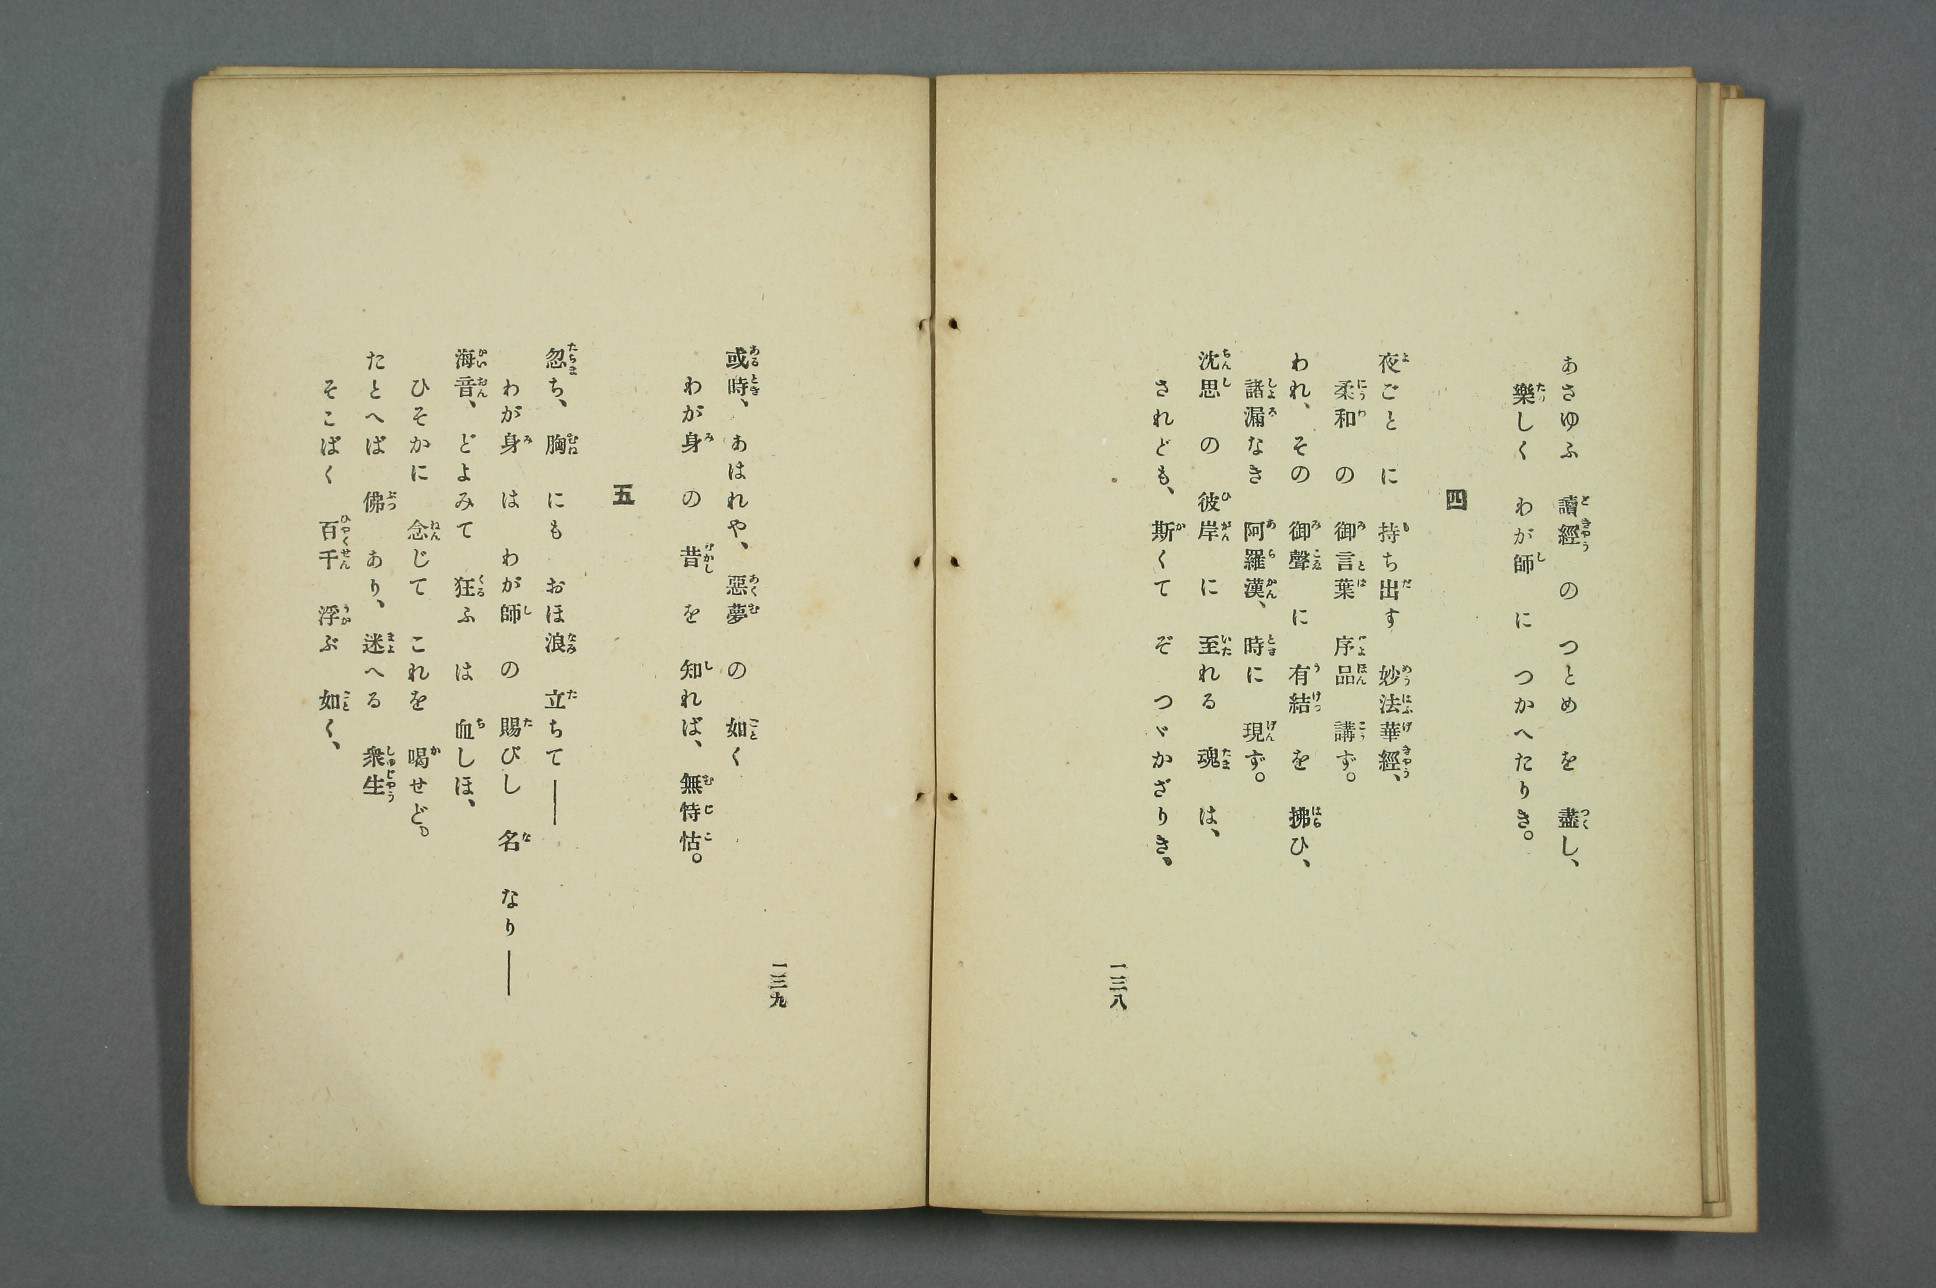 あさゆふ 讀經 の つとめ を 盡し、
樂しく わが師 に つかへたりき。
四
夜ごと に 持ち出す 妙法華經、
柔和 の 御言葉 序品 講ず。
われ、その 御聲 に 有結 を 拂ひ、
諸漏なき 阿羅漢、時に 現ず。
沈思 の 彼岸 に 至れる 魂 は、
されども、斯くて ぞ つゞかざりき。
一三八
或時、あはれや、惡夢 の 如く
わが身 の 昔 を 知れば、無恃怙。
五
忽ち、胸 にも おほ浪 立ちて――
わが身 は わが師 の 賜びし 名 なり――
海音、どよみて 狂ふ は 血しほ、
ひそかに 念じて これを 喝せど。
たとへば 佛 あり、迷へる 衆生
そこばく 百千 浮ぶ 如く、
一三九